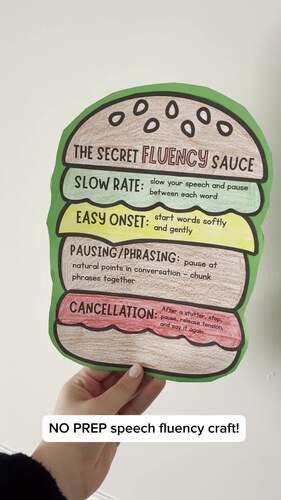 THE SECRET FLUENCY SAUCE
SLOW RATE: slow your speech and pause
between each word
EASY ONSET: start words softly
and gently
PAUSING/PHRASING: pause at
natural points in conversation - chunk
phrases together
CANCELLATION: After a stutter, stop,
pause, release tension,
and say it again.
NO PREP speech fluency craft!